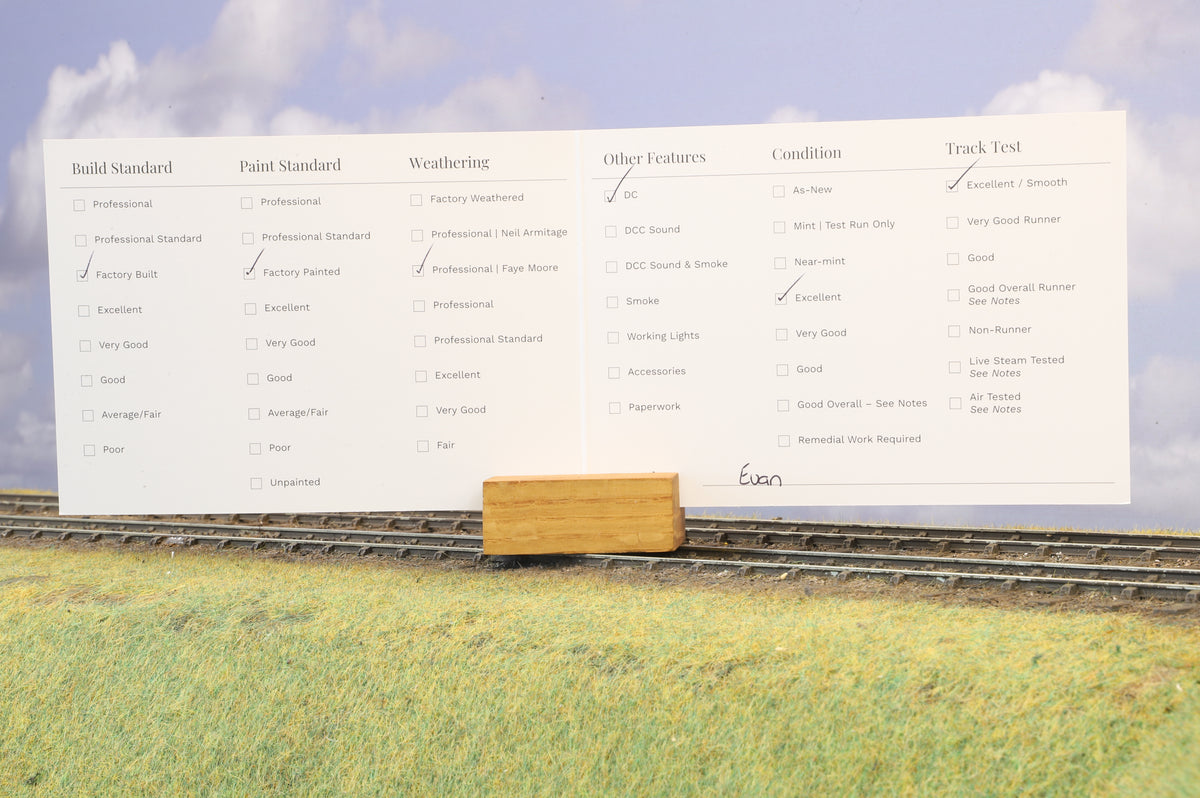 Build Standard
Professional
Professional Standard
Factory Built
Excellent
Very Good
Good
Average/Fair
Poor
Paint Standard
Professional
Professional Standard
Factory Painted
Excellent
Very Good
Good
Average/Fair
Poor
Unpainted
Weathering
Factory Weathered
Professional | Neil Armitage
Professional | Faye Moore
Professional
Professional Standard
Excellent
Very Good
Fair
Other Features
DC
DCC Sound
DCC Sound & Smoke
Smoke
Working Lights
Accessories
Paperwork
Condition
As-New
Mint | Test Run Only
Near-mint
Excellent
Very Good
Good
Good Overall – See Notes
Remedial Work Required
Track Test
Excellent / Smooth
Very Good Runner
Good
Good Overall Runner
See Notes
Non-Runner
Live Steam Tested
See Notes
Air Tested
See Notes
Evan